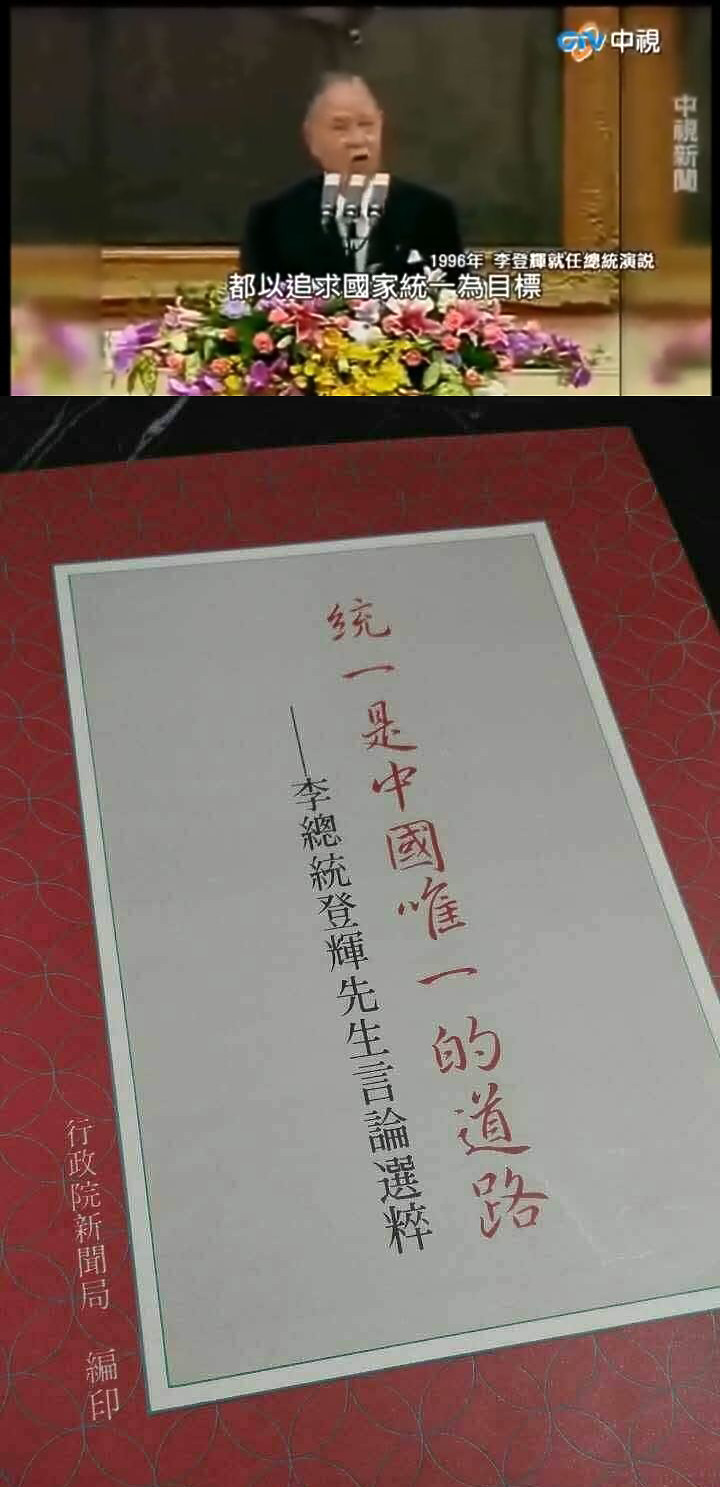 CTV中視
中視新聞
1996年 李登輝就任總統演說
都以追求國家統一為目標
統一是中國唯一的道路
——李總統登輝先生言論選粹
行政院新聞局 編印